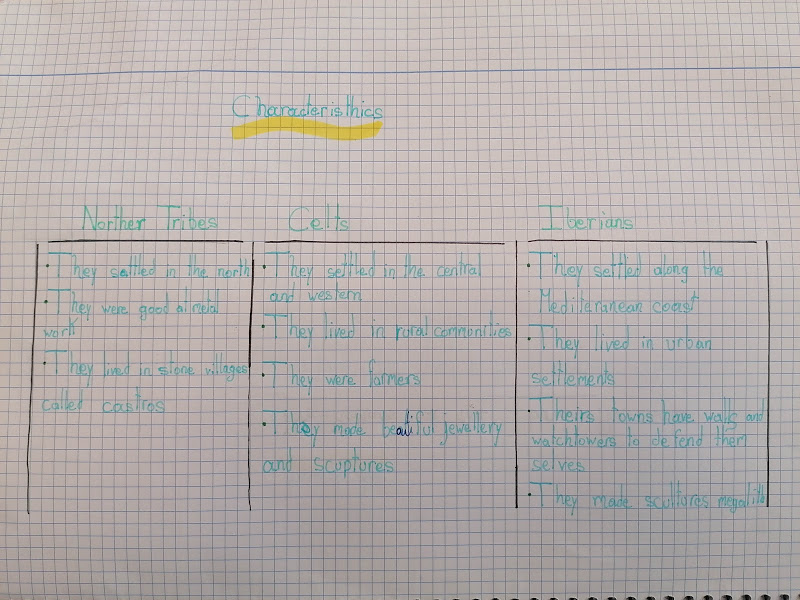 Characteristhics
Norther Tribes
· They settled in the north
· They were good at metal
work
· They lived in stone villages
called castros
Celts
· They settled in the central
and western
· They lived in roral commonities
· They were farmers
· They made beautiful jewellery
and scuptores
Iberians
· They settled along the
Mediteranean coast
· They lived in urban
settlements
· Theirs towns have walls and
watchtowers to defend them
selves
· They made scultures megalith